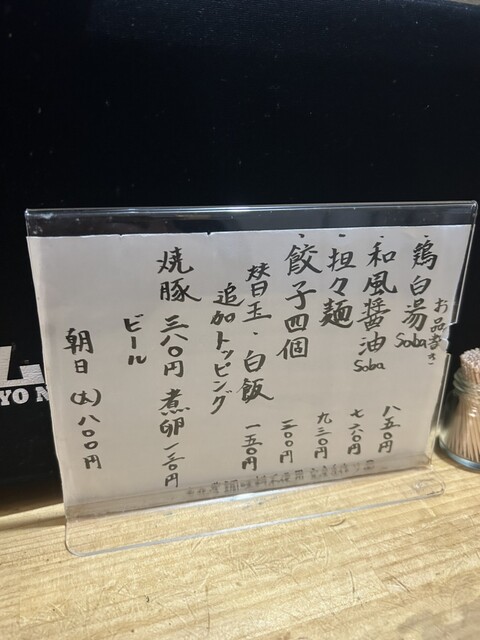 お品書き
鶏白湯Soba 八五〇円
和風醤油Soba 七六〇円
担々麺 九三〇円
餃子四個 三〇〇円
替玉・白飯 一五〇円
追加トッピング
焼豚 三八〇円 煮卵 一三〇円
ビール
朝日(大)八〇〇円
YO N